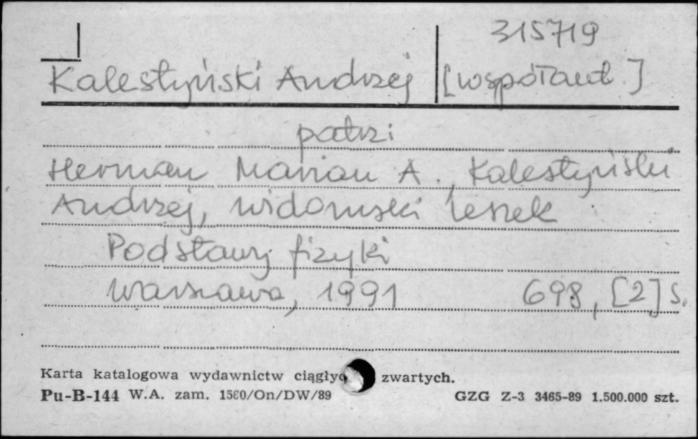 315719
Kalestyński Andrzej [współaut]
patrz:
Herman Marian A., Kalestyński
Andrzej, Widomski Leszek
Podstawy fizyki
Warszawa, 1991 698, [2] s.
Karta katalogowa wydawnictw ciągłyc zwartych.
Pu-B-144 W.A. zam. 1560/On/DW/89 GZG Z-3 3465-89 1.500.000 szt.